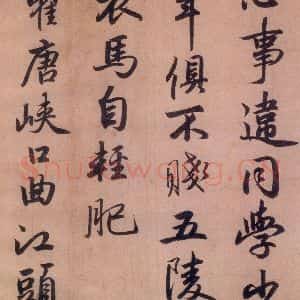 心事違同學少
年俱不賤五陵
衣馬自輕肥
瞿唐峽口曲江頭